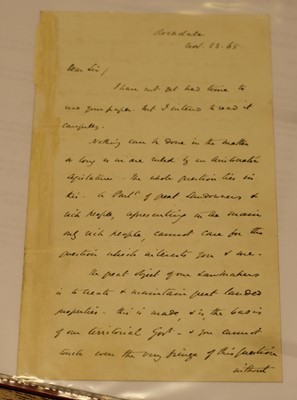 Rochdale
Nov. 23. 65
Dear Sir/
I have not yet had time to
use your paper. But I intend to read it
carefully.
Nothing can be done in the matter
so long as we are ruled by an Aristocratic
legislature. The whole question lies in
this. A Parlt. of great Landowners &
rich people, representing in the main
only rich people, cannot care for this
question which interests you & me.
The great object of our Lawmakers
is to create & maintain great landed
properties. This is made, & is, the basis
of our territorial Govt. & you cannot
touch even the very fringe of this question
without